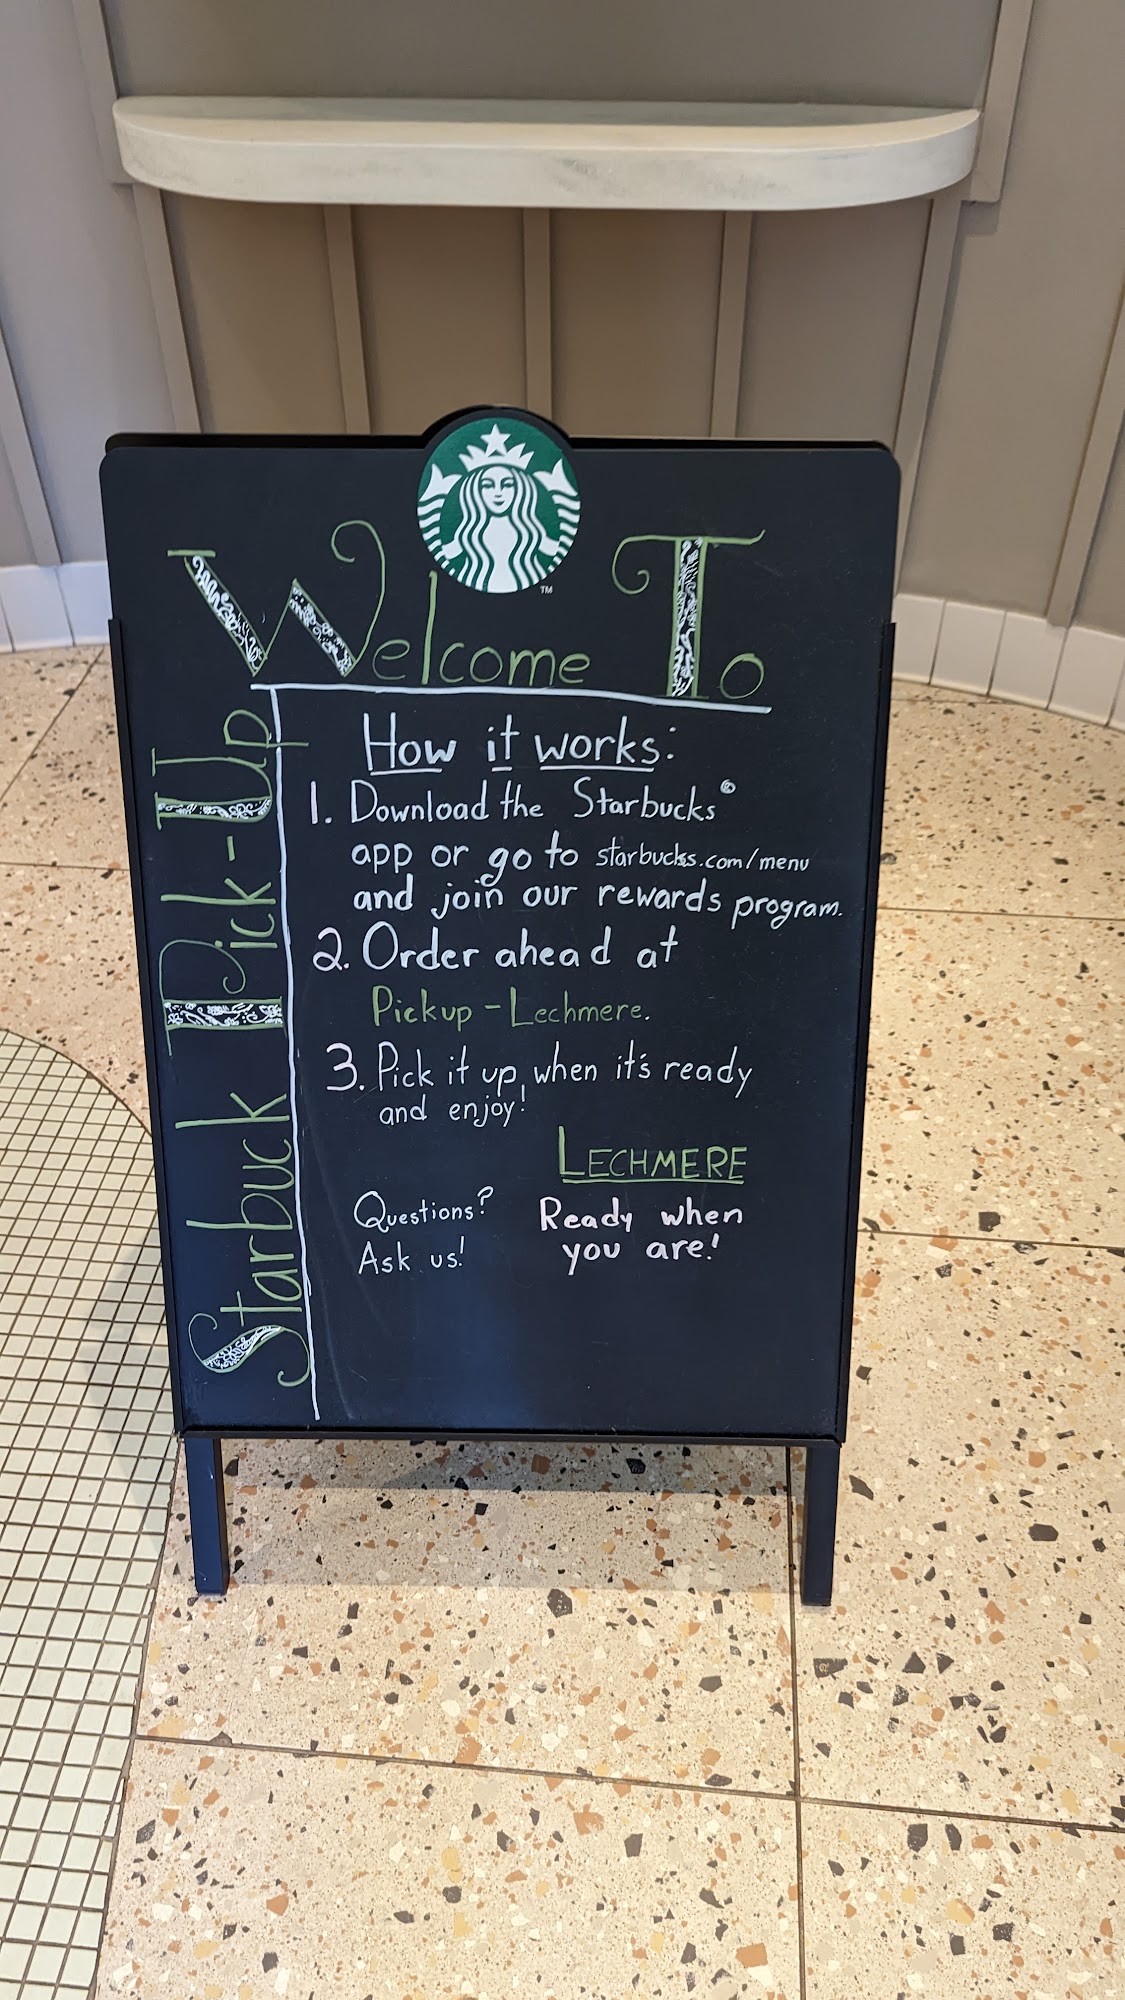 Welcome To
Starbuck Pick-Up
How it works:
1. Download the Starbucks©
app or go to starbucks.com/menu
and join our rewards program.
2. Order ahead at
Pickup - Lechmere.
3. Pick it up, when it's ready
and enjoy!
LECHMERE
Questions?
Ask us!
Ready when
you are!
TM